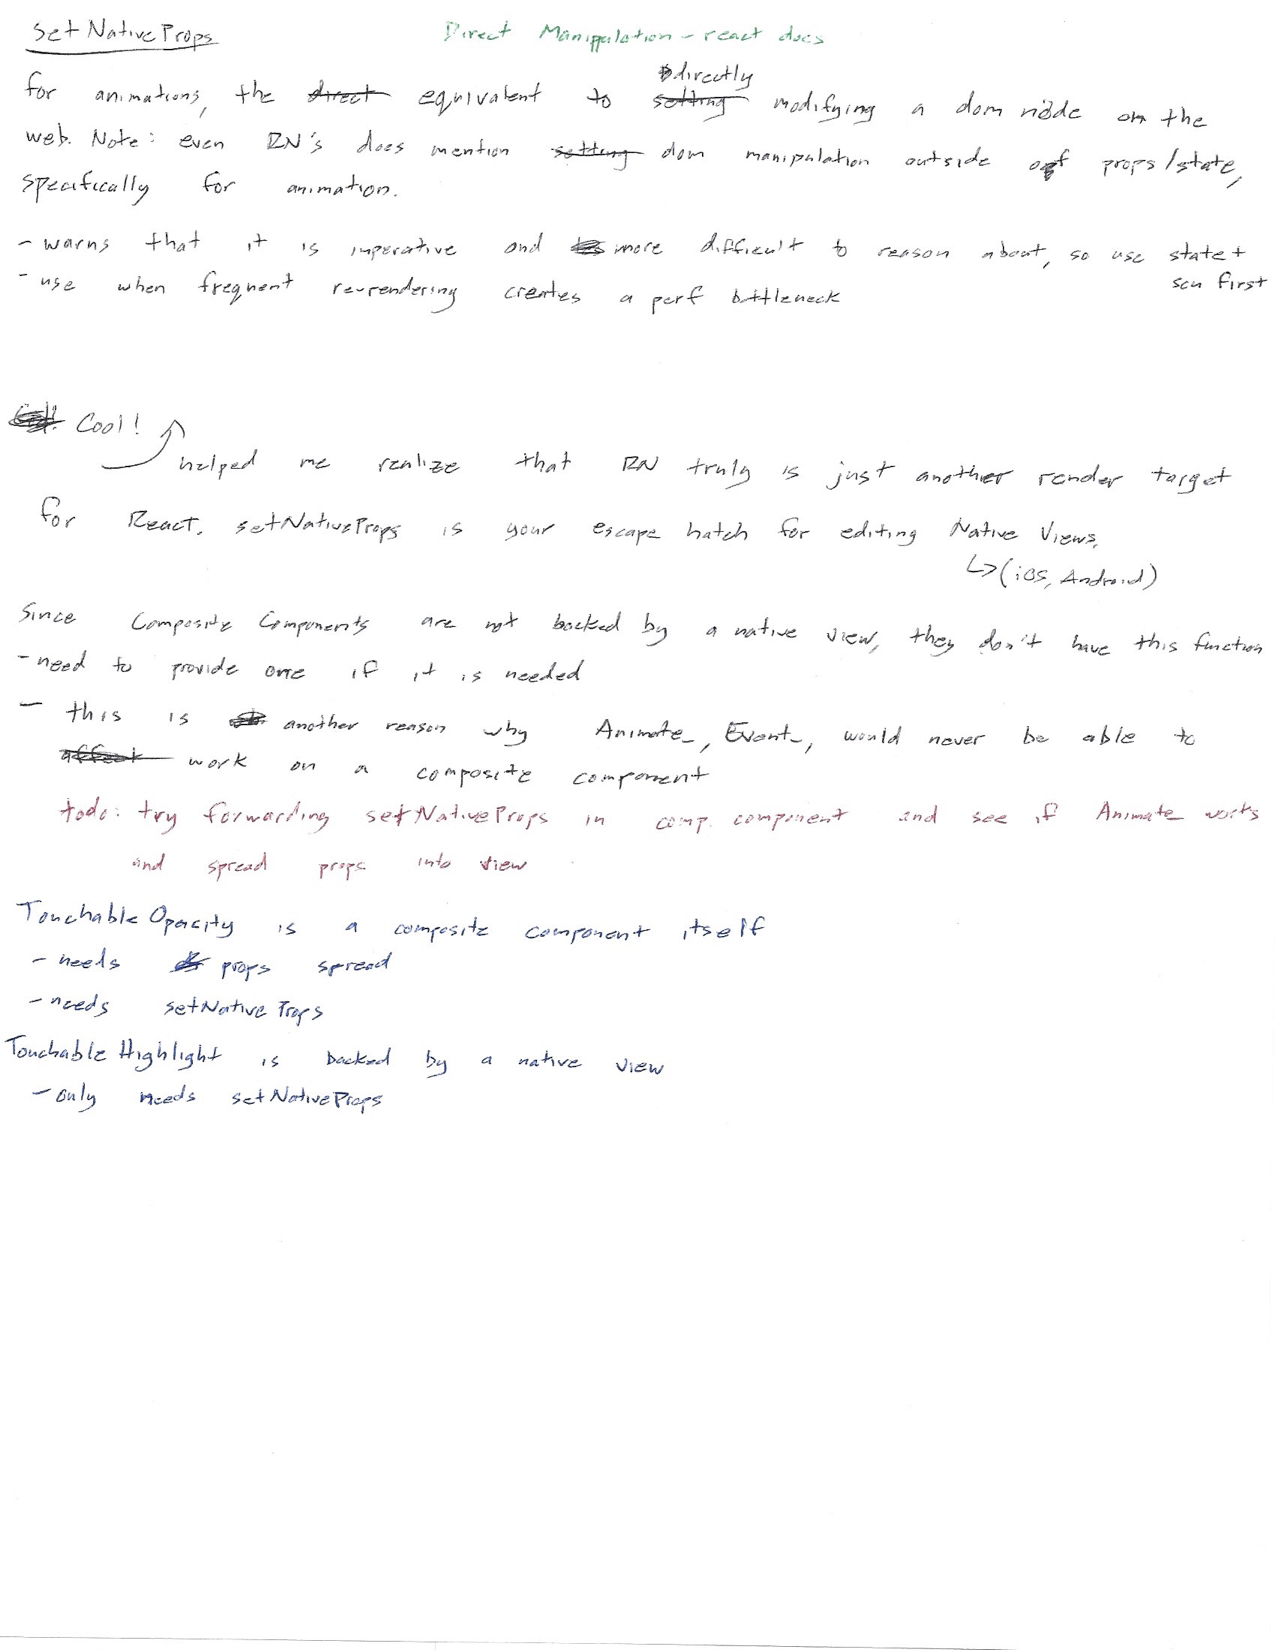 setNativeProps
Direct Manipulation - react docs
directly
for animations, the direct equivalent to setting modifying a dom node on the
web. Note: even RN's docs mention setting dom manipulation outside of props/state,
specifically for animation.
- warns that it is imperative and more difficult to reason about, so use state +
scu first
- use when frequent re-rendering creates a perf bottleneck
Cool!
helped me realize that RN truly is just another render target
for React. setNativeProps is your escape hatch for editing Native Views.
↳ (iOS, Android)
Since Composite Components are not backed by a native view, they don't have this function
- need to provide one if it is needed
- this is another reason why Animate_, Event_, would never be able to
affect work on a composite component
todo: try forwarding setNativeProps in comp. component and see if Animate_ works
and spread props into view
Touchable Opacity is a composite component itself
- needs props spread
- needs setNativeProps
Touchable Highlight is backed by a native view
- only needs setNativeProps